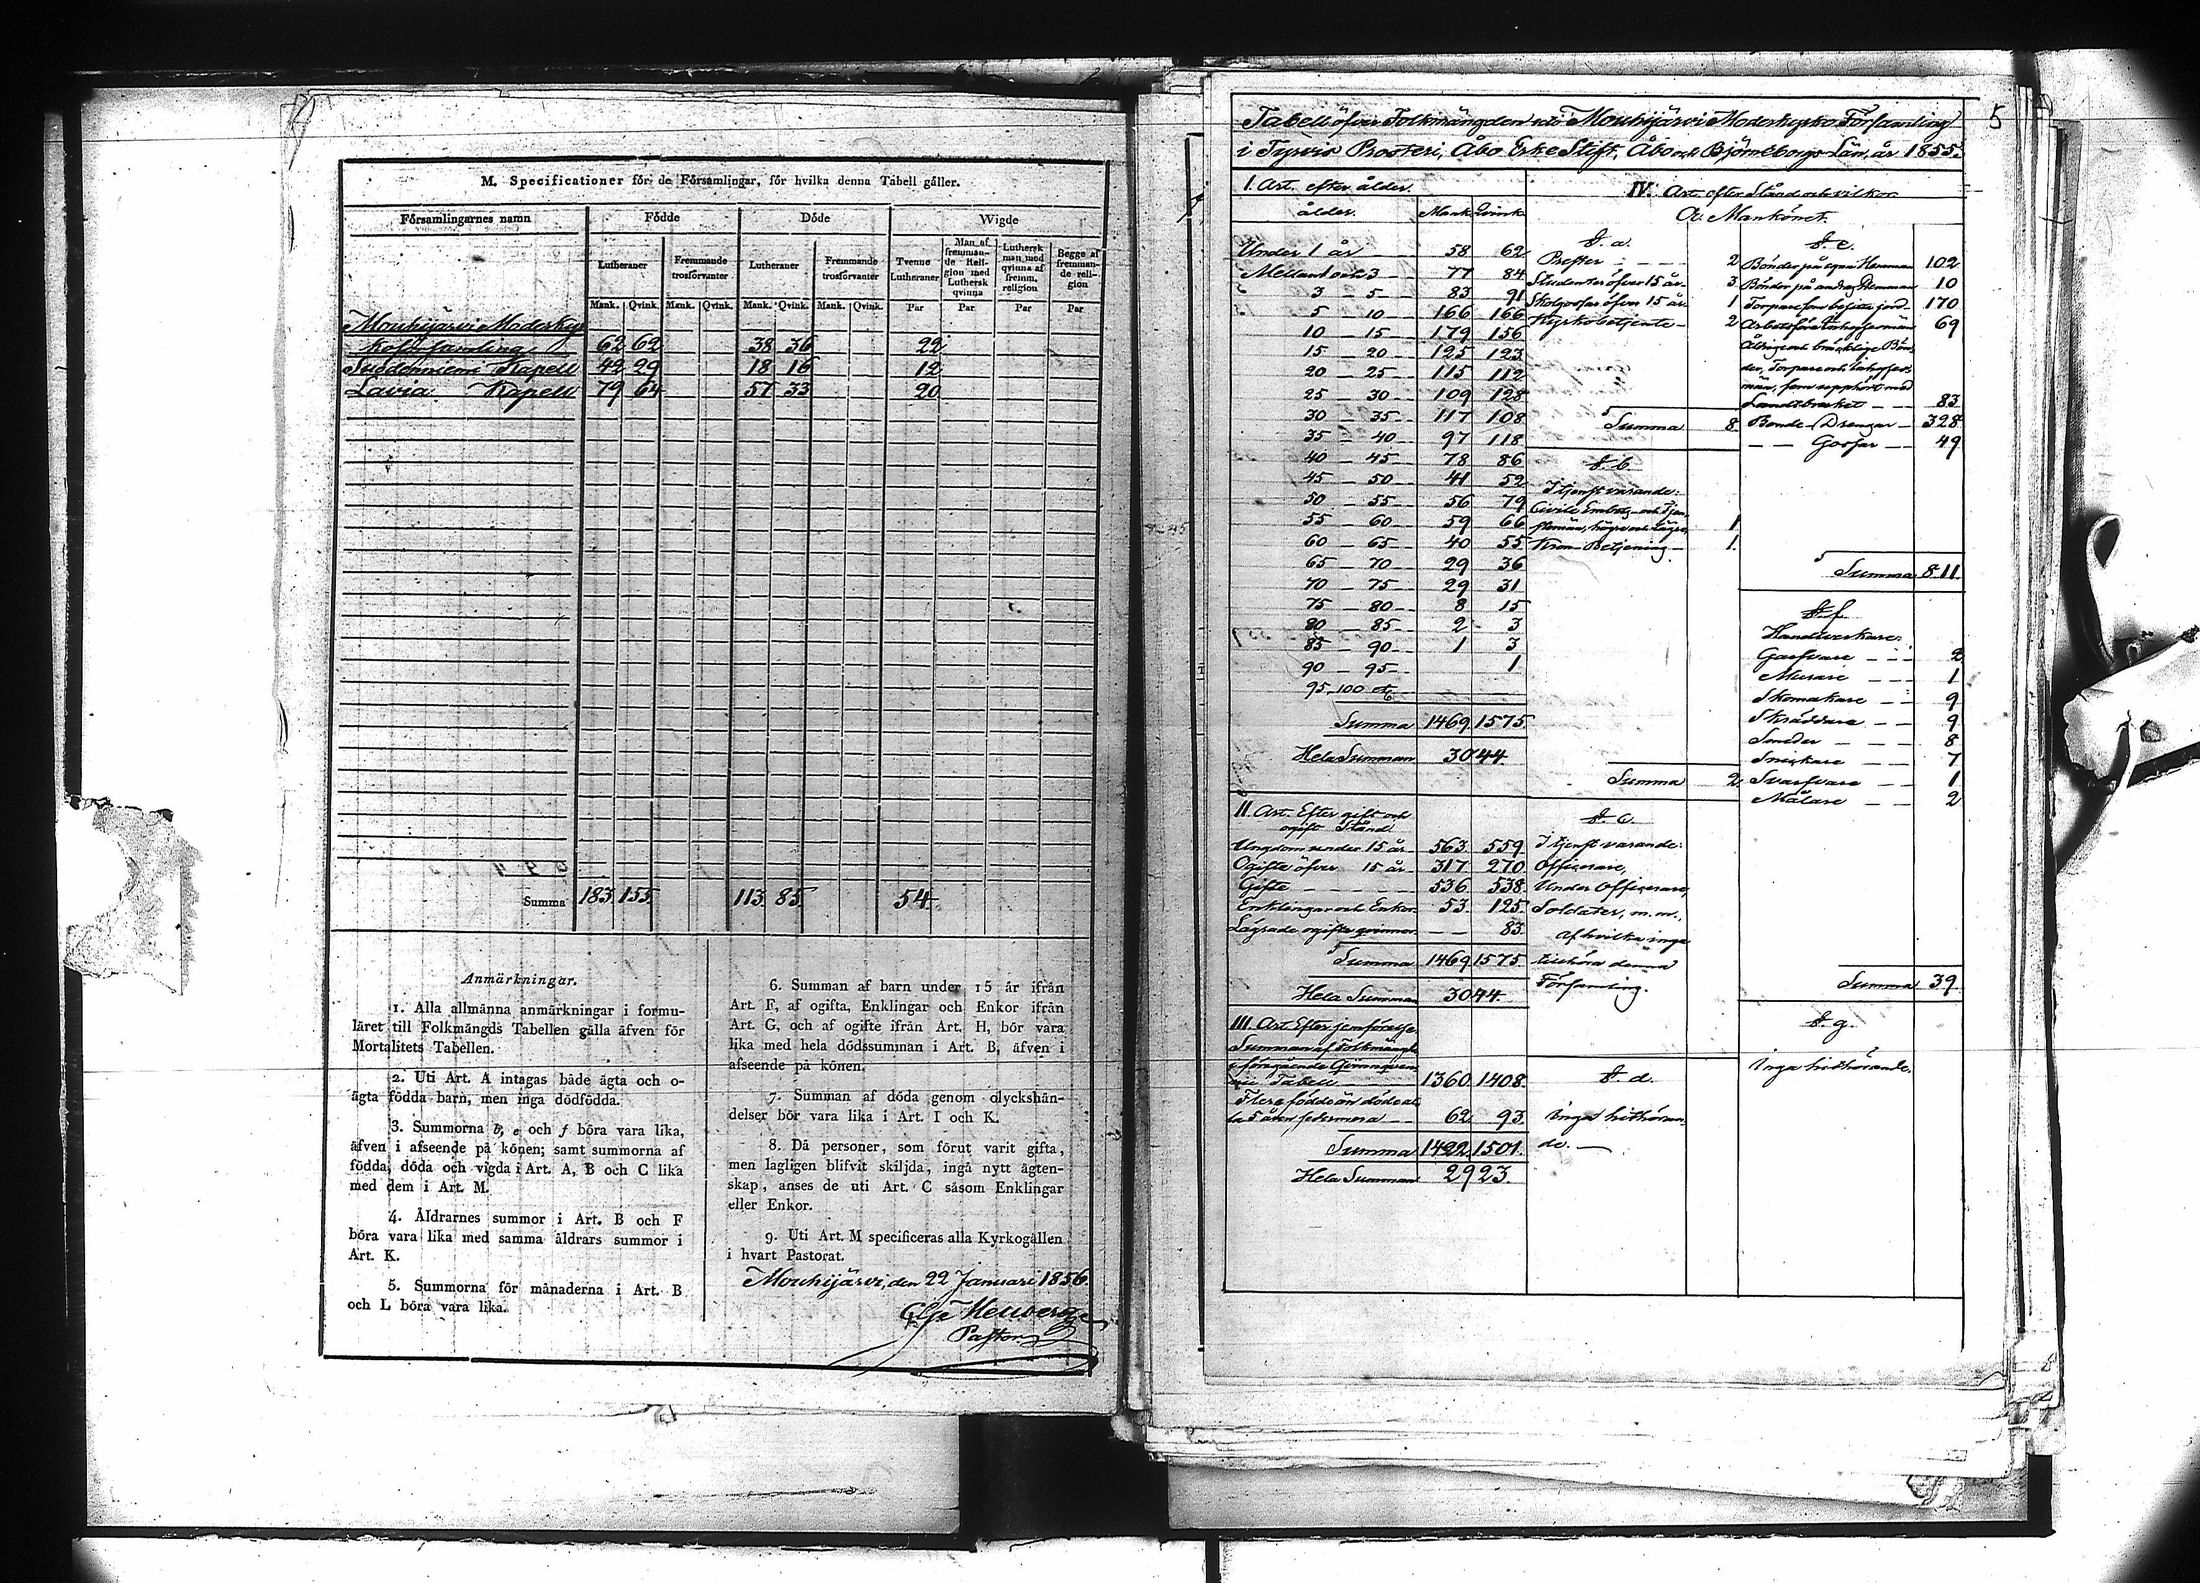 M. Specificationer för de Församlingar, för hvilka denna Tabell gäller.
Församlingarnes namn Födde Döde Wigde
Lutheraner Fremmande trosförvanter Lutheraner Fremmande trosförvanter Tvenne Lutheraner Man af fremmande Religion med Luthersk qvinna Luthersk man med qvinna af fremm. religion Begge af fremmande religion
Mank. Qvink. Mank. Qvink. Mank. Qvink. Mank. Qvink. Par Par Par Par
Mouhijärvi Moderkyr
koförsamling 62 62 38 36 22
Suodenniemi Kapell 42 29 18 16 12
Lavia Kapell 79 64 57 33 20
Summa 183 155 113 85 54
Anmärkningar.
1. Alla allmänna anmärkningar i formu-
läret till Folkmängds Tabellen gälla äfven för
Mortalitets Tabellen.
2. Uti Art. A intagas både ägta och o-
ägta födda barn, men inga dödfödda.
3. Summorna b, e och f böra vara lika,
äfven i afseende på könen; samt summorna af
födda, döda och vigda i Art. A, B och C lika
med dem i Art. M.
4. Åldrarnes summor i Art. B och F
böra vara lika med samma åldrars summor i
Art. K.
5. Summorna för månaderna i Art. B
och L böra vara lika.
6. Summan af barn under 15 år ifrån
Art. F, af ogifta, Enklingar och Enkor ifrån
Art. G, och af ogifte ifrån Art. H, bör vara
lika med hela dödssumman i Art. B, äfven i
afseende på könen.
7. Summan af döda genom olyckshän-
delser bör vara lika i Art. I och K.
8. Då personer, som förut varit gifta,
men lagligen blifvit skiljda, ingå nytt ägten-
skap, anses de uti Art. C såsom Enklingar
eller Enkor.
9. Uti Art. M specificeras alla Kyrkogällen
i hvart Pastorat.
Mouhijärvi, den 22 Januari 1856.
Pastor
5
Tabell öfver Folkmängden uti Mouhijärvi Moderkyrko Församling
i Tyrvis Prosteri, Åbo Erke Stift, Åbo och Björneborgs Län, år 1855.
I. Art. efter ålder.
ålder. Mank. Qvink.
Under 1 år 58 62
Mellan 1 och 3 77 84
3 - 5 83 91
5 - 10 166 166
10 - 15 179 156
15 - 20 125 123
20 - 25 115 112
25 - 30 109 128
30 - 35 117 108
35 - 40 97 118
40 - 45 78 86
45 - 50 41 52
50 - 55 56 79
55 - 60 59 66
60 - 65 40 55
65 - 70 29 36
70 - 75 29 31
75 - 80 8 15
80 - 85 2 3
85 - 90 1 3
90 - 95 1
95 - 100 etc
Summa 1469 1575
Hela Summan 3044
II. Art. Efter gift och
ogift Stånd.
Ungdom under 15 år 563 559
Ogifte öfver 15 år 317 270
Gifte 536 538
Enklingar och Enkor 53 125
Lägrade ogifta qvinnor 83
Summa 1469 1575
Hela Summan 3044
III. Art. Efter jemförelse.
Summan af Folkmängd.
Tabell 1360 1408
Flere födde än döde
62 93
Summa 1422 1501
Hela Summan 2923
IV. Art. efter Stånd och vilkor.
A. Mankönet.
§. a.
Prester 2
Studenter öfver 15 år 3
Skolgossar öfver 15 år 1
Kyrkobetjente 2
Summa 8
§. b.
I tjenst varande:
Civile Embets- och Tjen-
stemän, högre och lägre 1
Kron Betjening 1
Summa 2
§. c.
I tjenst varande:
Officerare,
Under Officerare,
Soldater, m. m.,
af hvilka inga
tillhöra denna
Församling.
§. d.
Inga hithöran-
de.
§. e.
Bönder på egna Hemman 102
Bönder på andras Hemman 10
Torpare som besitta jord 170
69
Åldrige och bräcklige Bön-
der, Torpare och Inhyses-
män, som upphört med
Landtbruket 83
Bonde-Drengar 328
Gossar 49
Summa 811
§. f.
Handtverkare:
Garfvare 2
Murare 1
Skomakare 9
Skräddare 9
Smeder 8
Snickare 7
Svarfvare 1
Målare 2
Summa 39
§. g.
Inga hithörande.